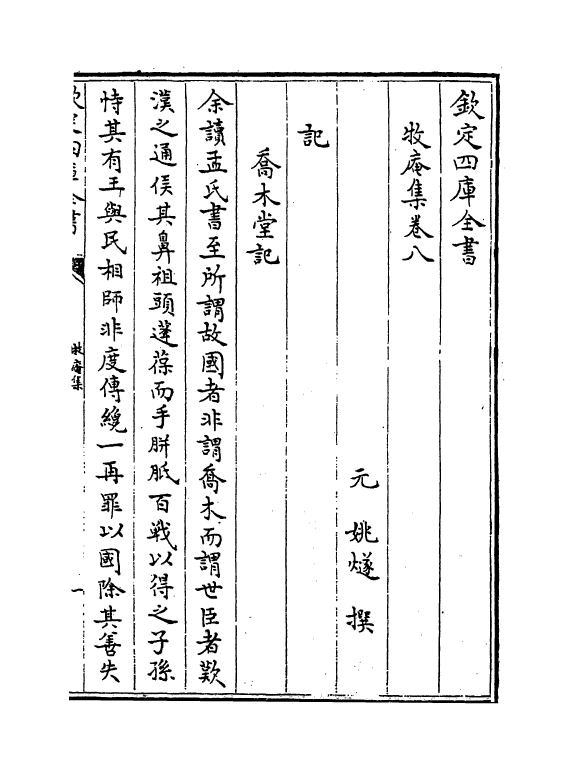 欽定四庫全書
牧庵集卷八
元 姚燧 撰
記
喬木堂記
余讀孟氏書至所謂故國者非謂喬木而謂世臣者歎
漢之通侯其鼻祖頭蓬葆而手胼胝百戰以得之子孫
恃其有玉與民相師非度傳纔一再罪以國除其善失
欽定四庫全書
牧庵集
一